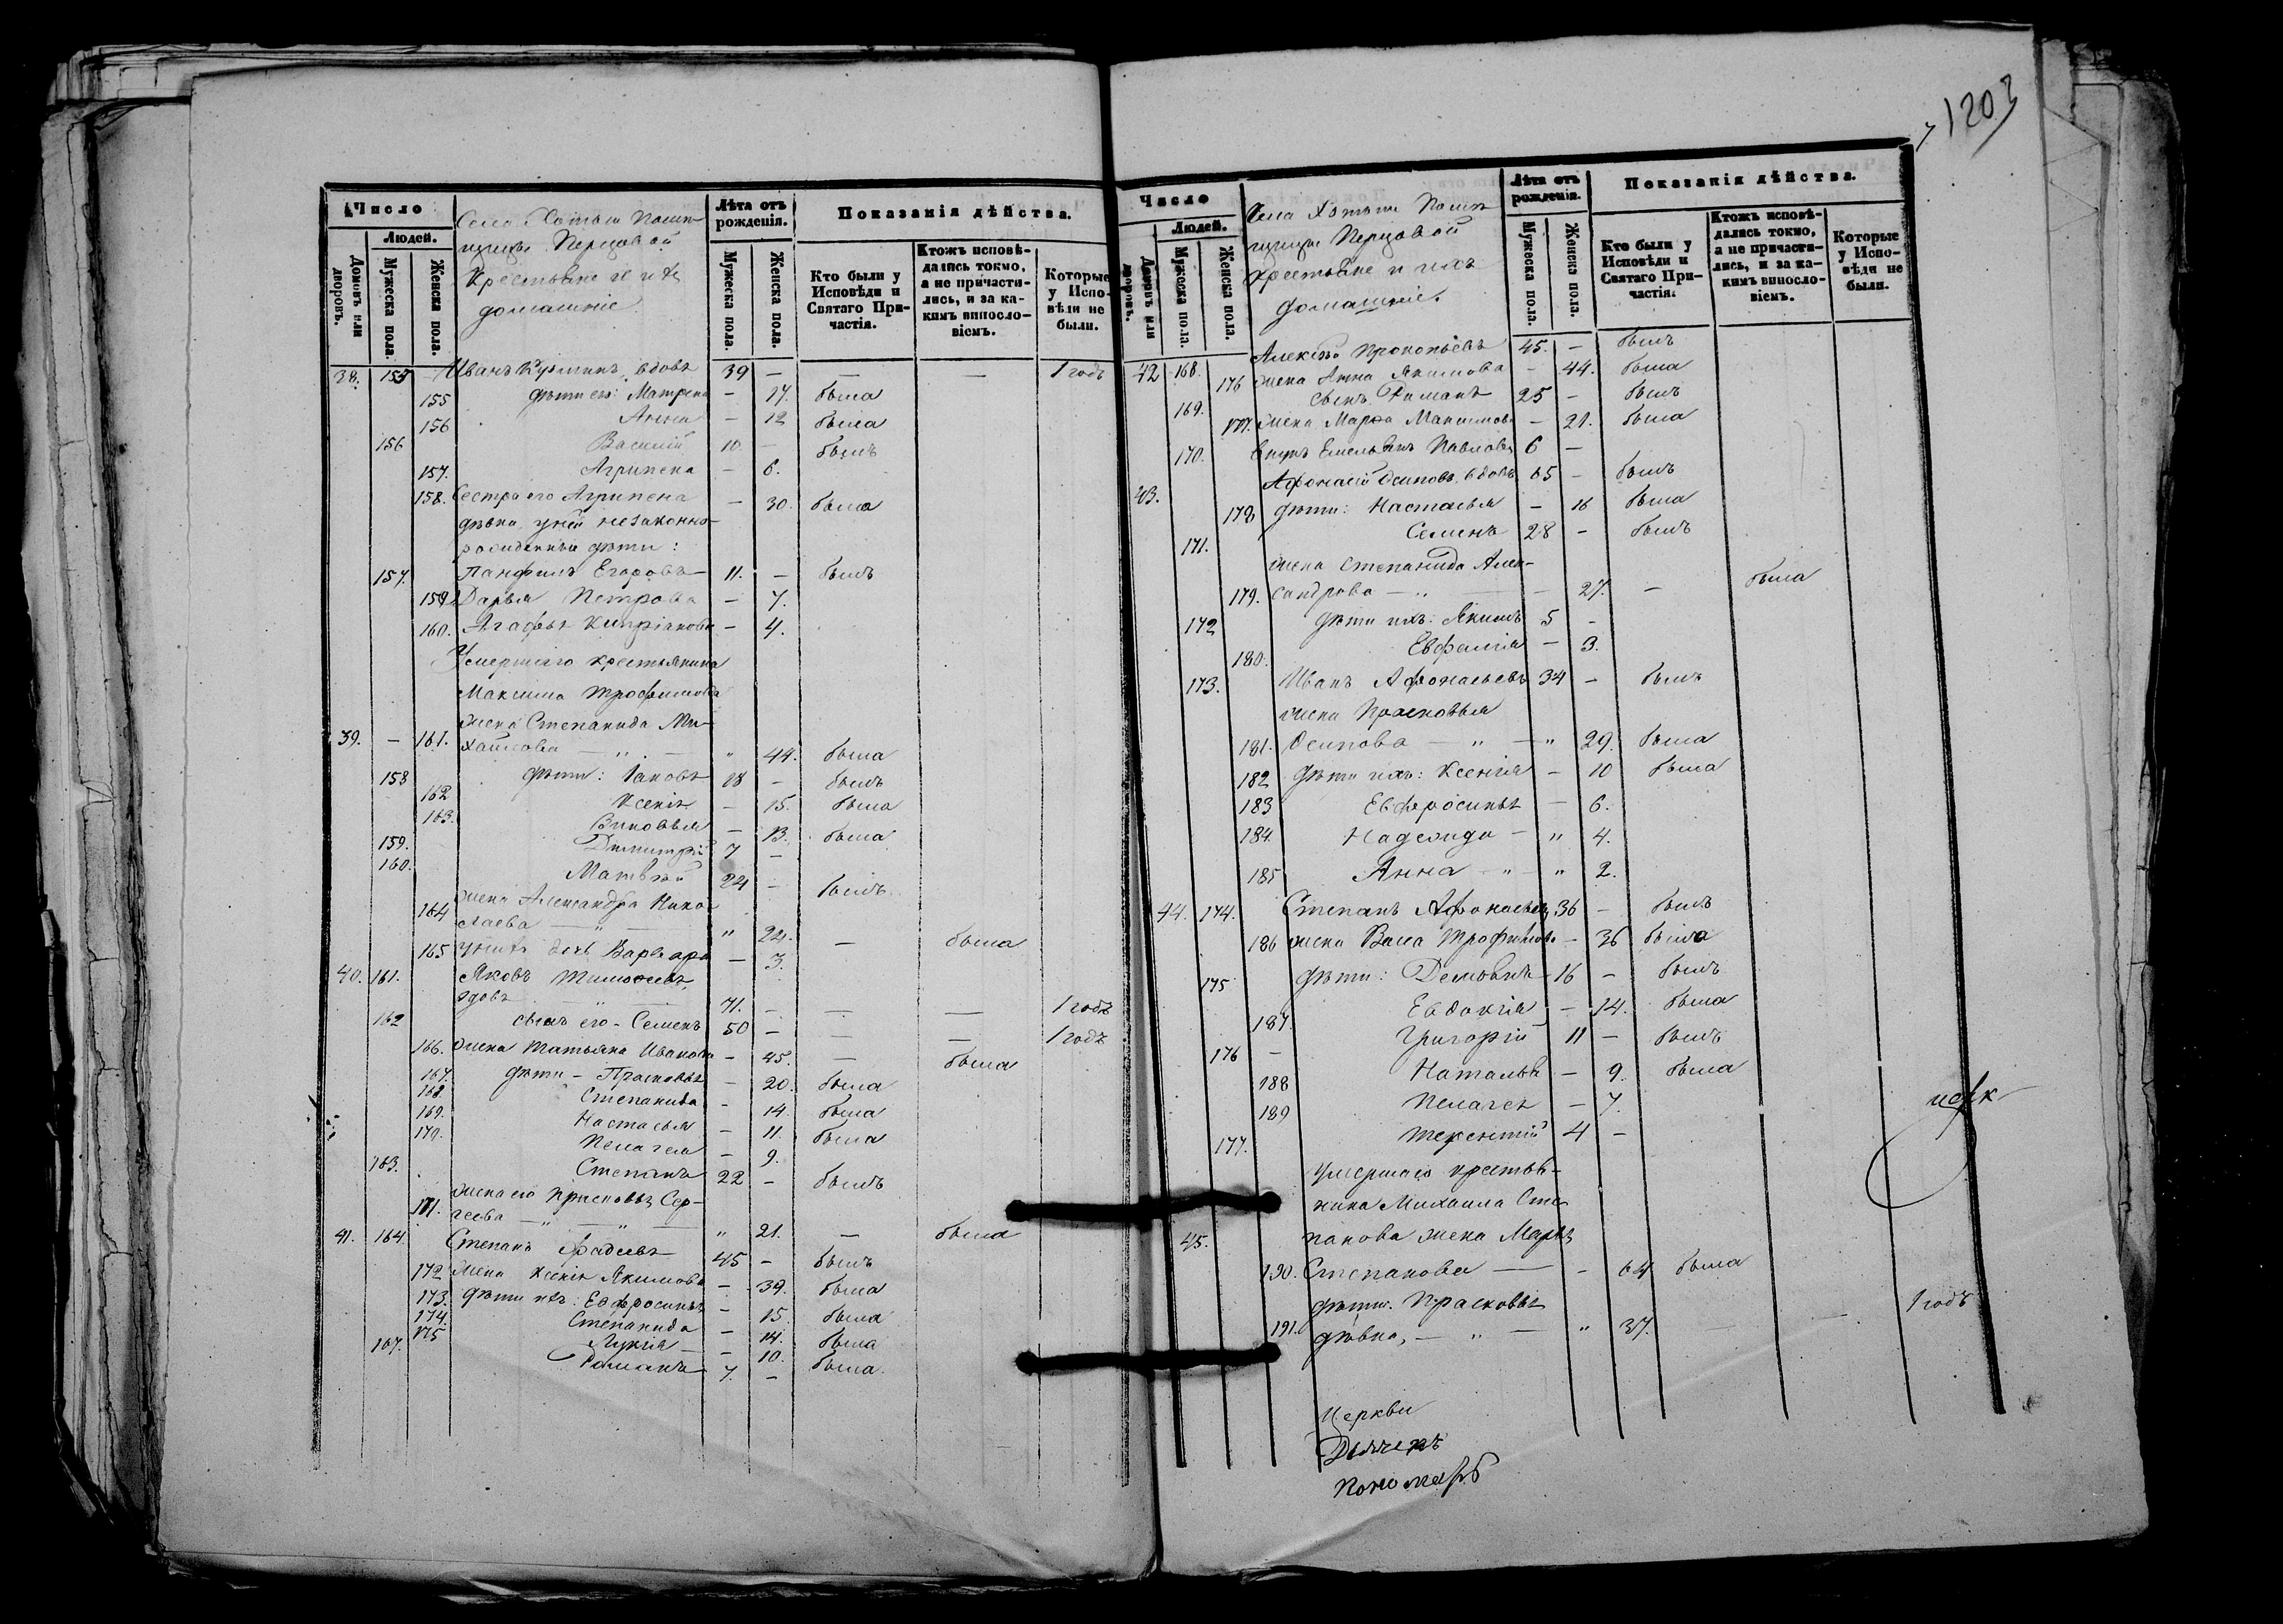 1203
Число
Людей.
Домовъ или дворовъ.
Мужеска пола.
Женска пола.
Село Хотыни Помѣ-
щицы Перцовой
Крестьяне и ихъ
домашніе
Лѣта отъ рожденія.
Мужеска пола.
Женска пола.
Показанія дѣйства.
Кто были у Исповѣди и Святаго Причастія.
Ктожъ исповѣдались токмо, а не причастились, и за какимъ винословіемъ.
Которые у Исповѣди не были.
38. 155 Иванъ Кузминъ вдовъ 39 — — — 1 годъ
155 дѣти его: Матрена — 17. была
156 Анна — 12 была
156 Василій 10. — былъ
157. Агрипена — 6.
158. Сестра его Агрипена — 30. была
дѣвка, у ней незаконно-
рожденныя дѣти:
157. Панфилъ Егоровъ 11. — былъ
159 Дарья Петрова — 7.
160. Агафья Кипріянова — 4.
Умершаго крестьянина
Максима Трофимова
жена Степанида Ми-
39. — 161. хайлова — „ — „ 44. была
158 дѣти: Іаковъ 18 — былъ
162 Ксенія — 15. была
163. — 13. была
159. Димитрій 7 —
160. Матвѣй 24 — былъ
жена Александра Нико-
164 лаева — „ — „ 22. — была
165 у нихъ дочь Варвара — 3.
40. 161. Яковъ Тимофеевъ,
вдовъ — „ — 71. — — — 1 годъ
162 сынъ его – Семенъ 50 — — — 1 годъ
166. жена Татьяна Иванова — 45. — была
167. дѣти – Прасковья — 20. была
168. Степанида — 14. была
169. Настасья — 11. была
170. Пелагея — 9.
163. Степанъ 22 — былъ
жена его Прасковья Сер-
171. геева — „ — „ — „ 21. — была
41. 164 Степанъ Фадеевъ 45 — былъ
172 жена Ксенія Якимова — 39. была
173. дѣти ихъ: Евфросинья — 15. была
174. Степанида — 14. была
175 Лукія — 10. была
167. Романъ 7. —
Число
Людей.
Домовъ или дворовъ.
Мужеска пола.
Женска пола.
Села Хотыни Помѣ-
щицы Перцовой
крестьяне и ихъ
домашніе.
Лѣта отъ рожденія.
Мужеска пола.
Женска пола.
Показанія дѣйства.
Кто были у Исповѣди и Святаго Причастія.
Ктожъ исповѣдались токмо, а не причастились, и за какимъ винословіемъ.
Которые у Исповѣди не были.
42 168. Алексѣй Прокопьевъ 45. — былъ
176 жена Анна Якимова — 44. была
169. сынъ Романъ 25 — былъ
177. жена Марѳа Максимова — 21. была
170. внукъ Емельянъ Павловъ 6 —
43. Афонасій Осиповъ вдовъ 65 — былъ
178 дѣти: Настасья — 16 была
171. Семенъ 28 — былъ
жена Степанида Алек-
179. сандрова — „ — — 27. — была
172 дѣти ихъ: Якимъ 5 —
180. Евфимія — 3.
173. Иванъ Афонасьевъ 34 — былъ
жена Прасковья
181. Осипова — „ — „ 29. была
182 дѣти ихъ: Ксенія — 10 была
183 Евфросинья — 6.
184 Надежда — „ 4.
185 Анна — „ — „ 2.
44. 174. Степанъ Афонасьевъ 36 — былъ
186 жена Васса Трофимова — 36 была
175 дѣти: 16 — былъ
187. Евдокія — 14. была
176 — Григорій 11 — былъ
188 Наталья — 9. была
189 Пелагея — 7.
177. Терентій 4 —
умершаго крестья-
нина Михаила Сте-
45. панова жена Марья
190. Степанова — — 64 была
дѣти: Прасковья
191. дѣвка, — „ — „ 37. — 1 годъ
Церкви
Дьячекъ
Пономарь